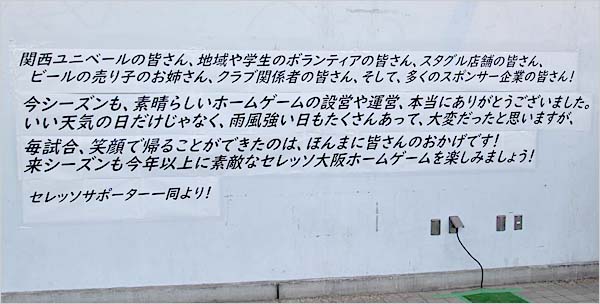 関西ユニベールの皆さん、地域や学生のボランティアの皆さん、スタグル店舗の皆さん、
ビールの売り子のお姉さん、クラブ関係者の皆さん、そして、多くのスポンサー企業の皆さん！
今シーズンも、素晴らしいホームゲームの設営や運営、本当にありがとうございました。
いい天気の日だけじゃなく、雨風強い日もたくさんあって、大変だったと思いますが、
毎試合、笑顔で帰ることができたのは、ほんまに皆さんのおかげです！
来シーズンも今年以上に素敵なセレッソ大阪ホームゲームを楽しみましょう！
セレッソサポーター一同より！